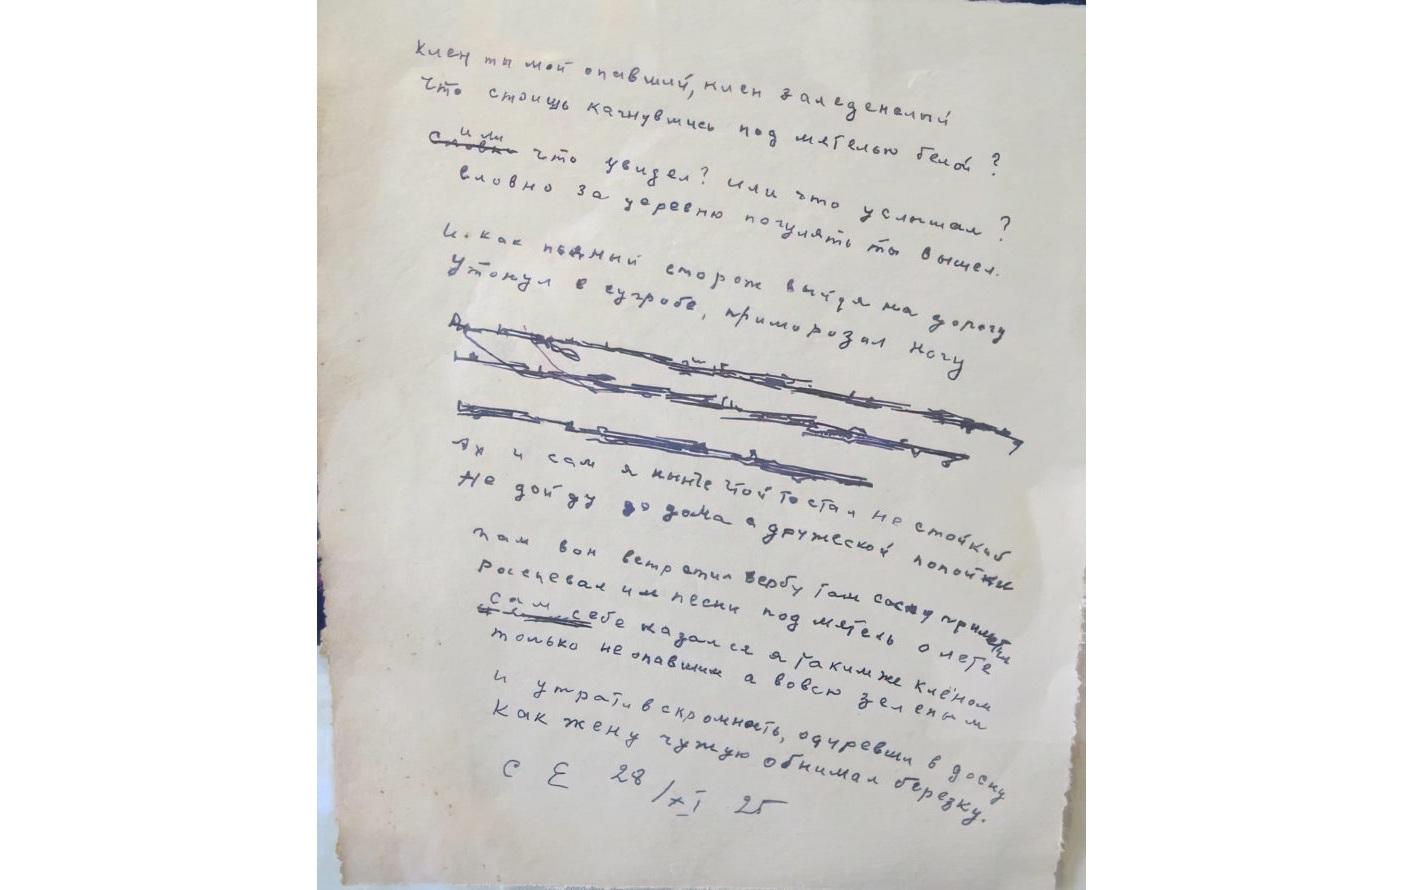 Клен ты мой опавший, клен заледенелый
Что стоишь качнувшись под мятелью белой?
или
Словно что увидел? или что услышал?
словно за деревню погулять ты вышел.
И как пьяный сторож выйдя на дорогу
Утонул в сугробе, приморозил ногу
Ах и сам я нынче чтой то стал не стойкий
Не дойду до дома с дружеской попойки
Там вон встретил вербу там сосну приметил
Распевал им песни под мятель о лете
сам себе казался я таким же клёном
только не опавшим а вовсю зеленым
И утратив скромность, одуревши в доску
Как жену чужую обнимал березку.
С Е 28/XI 25